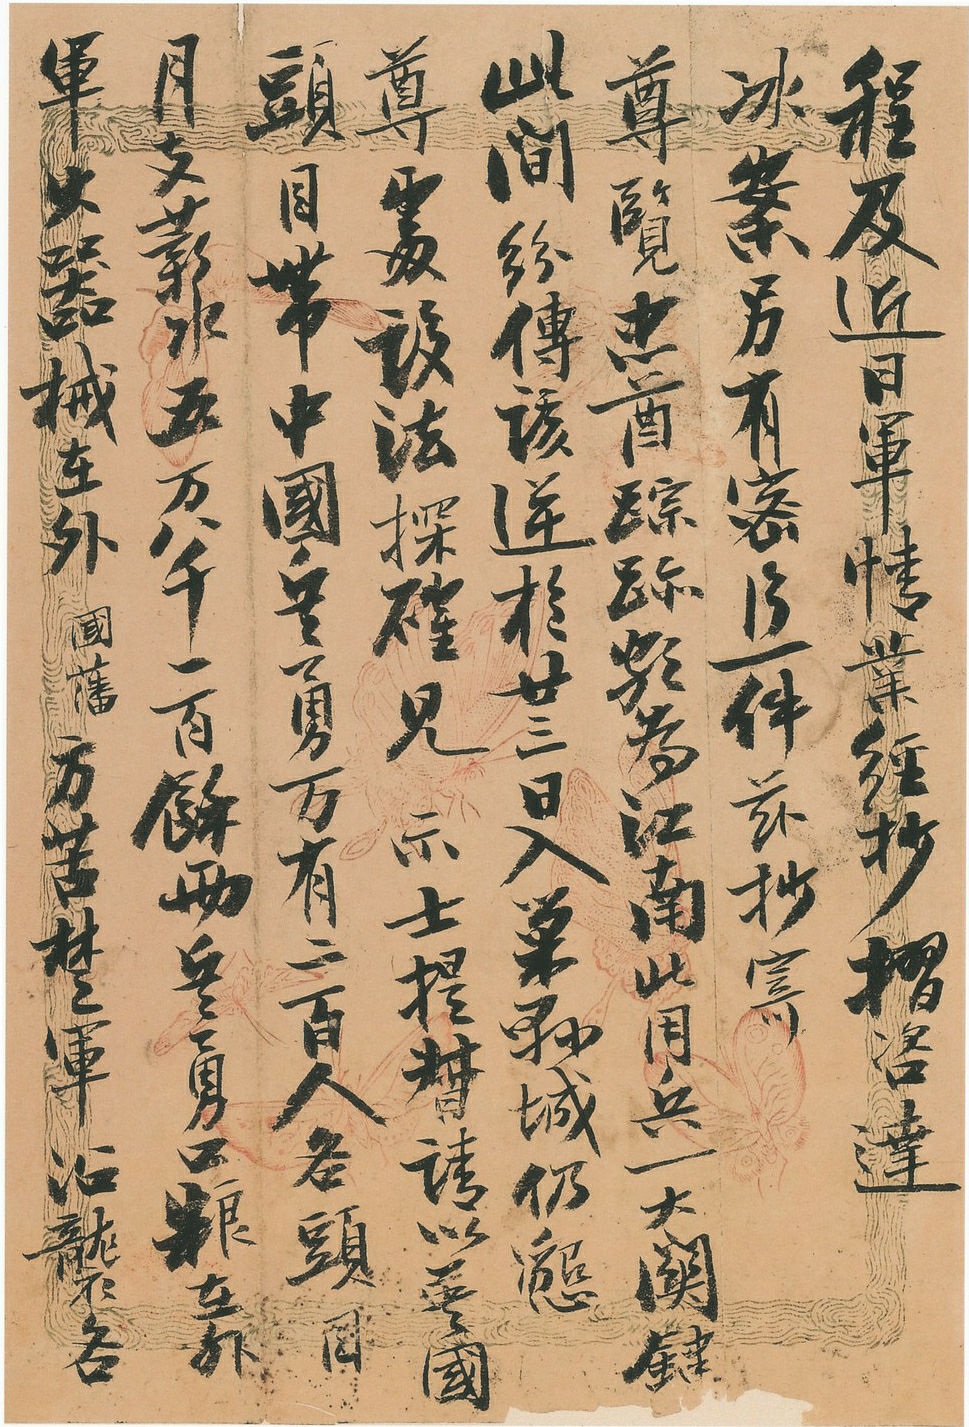 程及近日軍情業經抄摺咨達
冰案另有密片一件茲抄寄
尊覽忠酋踪跡數為江南此用兵一大關鍵
此間紛傳該逆於廿三日入巢縣城仍懇
尊處設法探確見示士提督請以英國
頭目帶中國兵勇万有二百人各頭目
月支薪水五万八千一百餘兩兵勇口粮在外
軍火器械在外國藩方苦楚軍沾